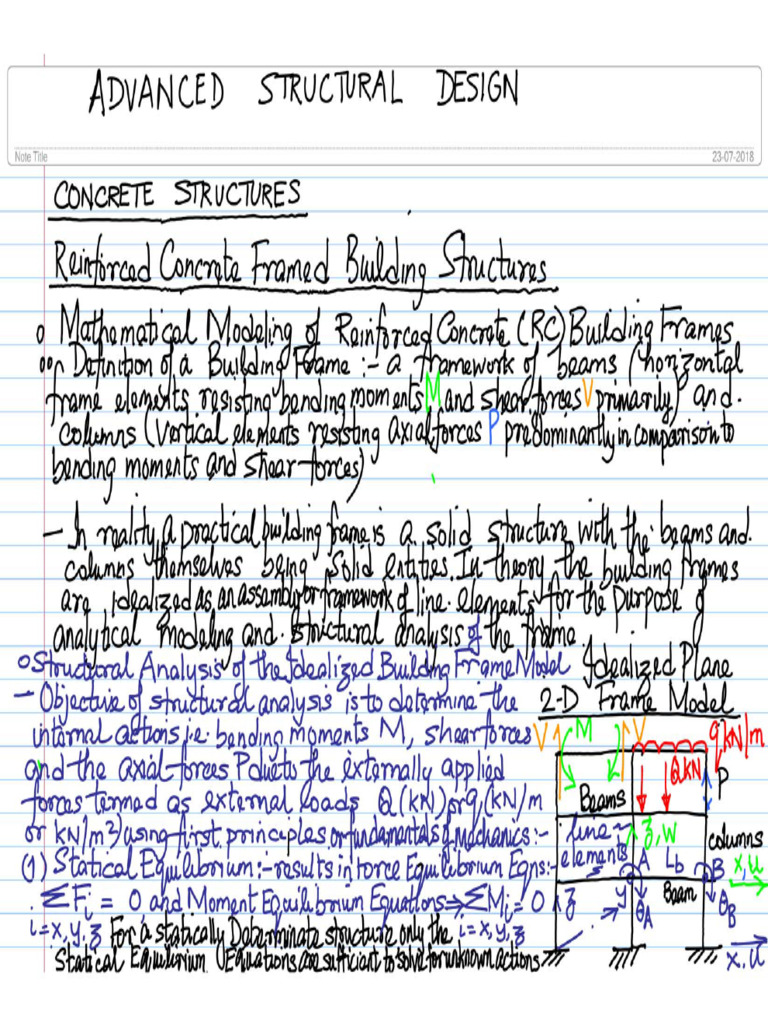 ADVANCED STRUCTURAL DESIGN
Note Title
23-07-2018
CONCRETE STRUCTURES
Reinforced Concrete Framed Building Structures
o Mathematical Modeling of Reinforced Concrete (RC) Building Frames
Definition of a Building Frame :- a framework of beams (horizontal
frame elements resisting bending moments M and shear forces V primarily) and
columns (vertical elements resisting axial forces P predominantly in comparison to
bending moments and shear forces)
- In reality, a practical building frame is a solid structure with the beams and
columns themselves being solid entities. In theory the building frames
are idealized as an assembly or framework of line elements for the purpose of
analytical modeling and structural analysis of the frame
o Structural Analysis of the Idealized Building Frame Model
- Objective of structural analysis is to determine the
internal actions i.e. bending moments M, shear forces V
and the axial forces P due to the externally applied
forces termed as external loads Q (kN) or q (kN/m
or kN/m²) using first principles or fundamentals of mechanics:-
(1) Statical Equilibrium:- results in Force Equilibrium Eqns:-
ΣFi = 0 and Moment Equilibrium Equations ⇒ ΣMi = 0
i = x, y, z For a statically Determinate structure only the i = x, y, z
Statical Equilibrium Equations are sufficient to solve for unknown actions
Idealized Plane
2-D Frame Model
V M V q kN/m
Q kN P
Beams
line elements
z, w
columns
A Lb B x, u
y Beam
z θA θB
x, u